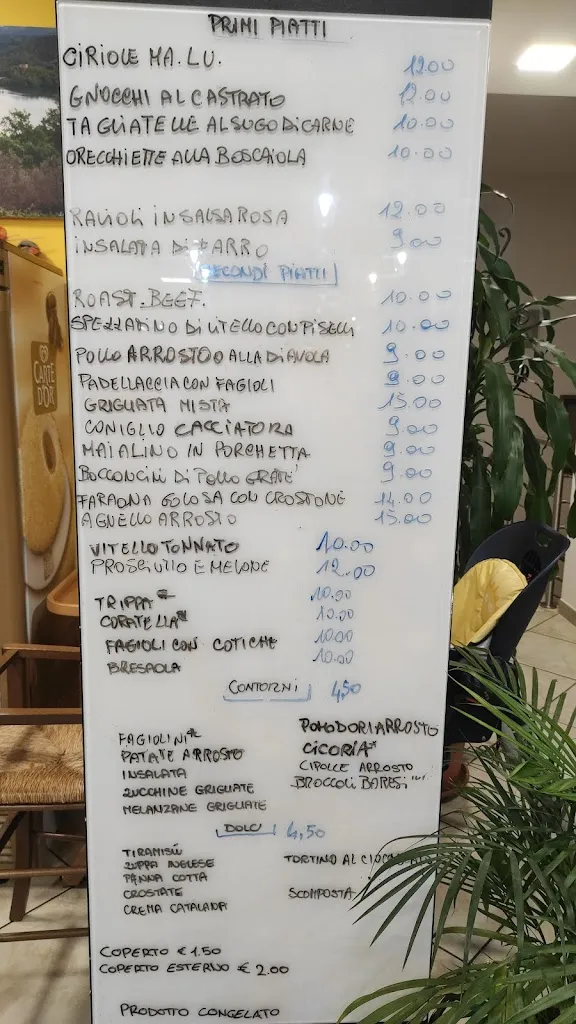 PRIMI PIATTI
CIRIOLE MA.LU. 12.00
GNOCCHI AL CASTRATO 12.00
TAGLIATELLE AL SUGO DI CARNE 10.00
ORECCHIETTE ALLA BOSCAIOLA 10.00
RAVIOLI IN SALSA ROSA 12.00
INSALATA DI FARRO 9.00
SECONDI PIATTI
ROAST-BEEF. 10.00
SPEZZATINO DI VITELLO CON PISELLI 10.00
POLLO ARROSTO O ALLA DIAVOLA 9.00
PADELLACCIA CON FAGIOLI 9.00
GRIGLIATA MISTA 15.00
CONIGLIO CACCIATORA 9.00
MAIALINO IN PORCHETTA 9.00
BOCCONCINI DI POLLO GRATÉ 9.00
FARAONA GOLOSA CON CROSTONE 14.00
AGNELLO ARROSTO 15.00
VITELLO TONNATO 10.00
PROSCIUTTO E MELONE 12.00
TRIPPA 10.00
CORATELLA 10.00
FAGIOLI CON COTICHE 10.00
BRESAOLA 10.00
CONTORNI 4,50
FAGIOLINI*
PATATE ARROSTO
INSALATA
ZUCCHINE GRIGLIATE
MELANZANE GRIGLIATE
POMODORI ARROSTO
CICORIA*
CIPOLLE ARROSTO
BROCCOLI BARESI
DOLCI 4,50
TIRAMISÚ
ZUPPA INGLESE
PANNA COTTA
CROSTATE
CREMA CATALANA
TORTINO AL
SCOMPOSTA
COPERTO € 1.50
COPERTO ESTERNO € 2.00
PRODOTTO CONGELATO
CARTE D'OR